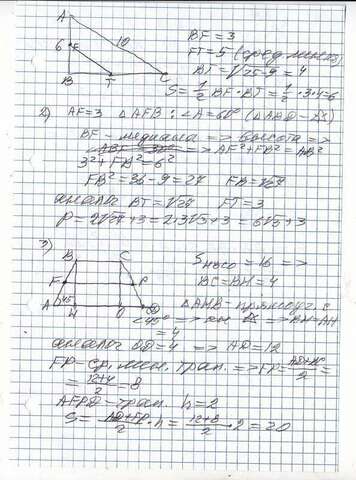 A
6 F 10
B T C
BF = 3
FT = 5 (сред. линия)
BT = √25-9 = 4
S = 1/2 BF · BT = 1/2 · 3 · 4 = 6
2) AF = 3 △AFB : ∠A = 60°
BF - медиана => высота =>
=> AF² + FB² = AB²
3² + FB² = 6²
FB² = 36 - 9 = 27 FB = √27
аналог. BT = √27 FT = 3
P = 2√27 + 3 = 2·3√3 + 3 = 6√3 + 3
3)
B C
F P
A 45° H O D
∠45°
S HBCO = 16 =>
BC = BH = 4
△AHB - прямоуг. с
=> BH = AH
= 4
аналог. OD = 4 => AD = 12
FP - ср. лин. трап. => FP =
= 12+4/2 = 8
AFPD - трап. h = 2
S = AD+FP/2 · h = 12+8/2 · 2 = 20